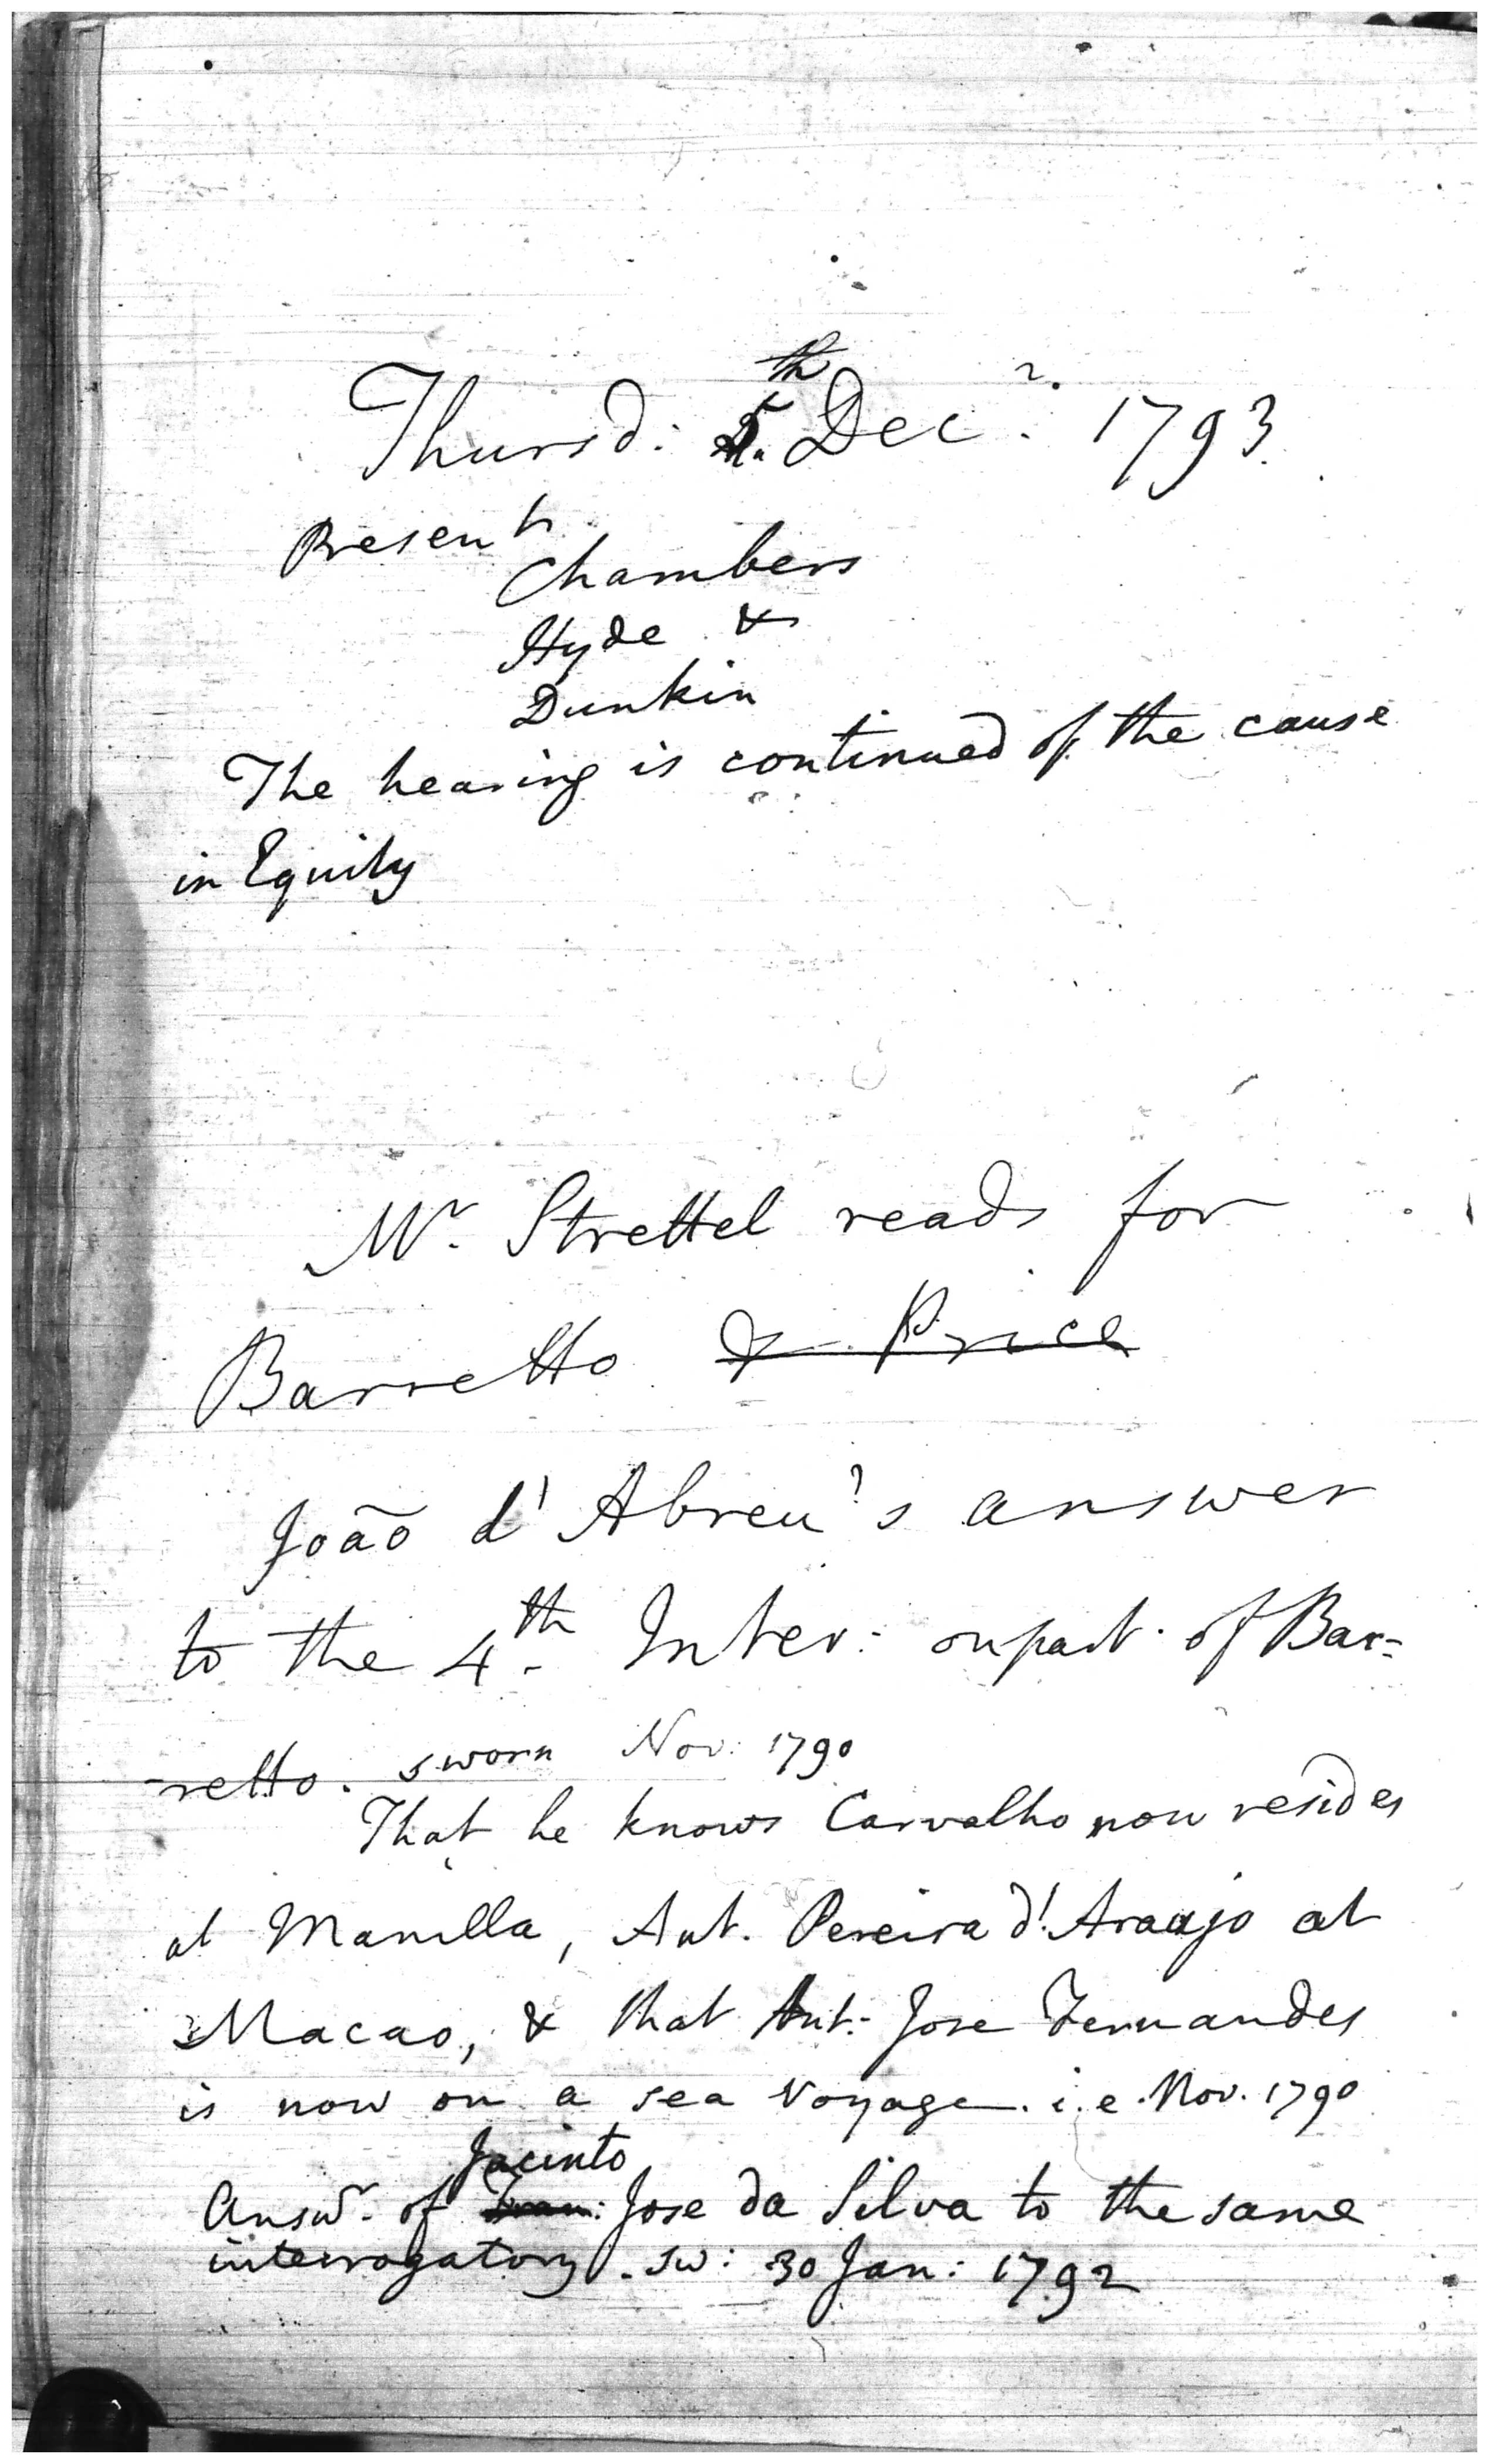 Thursd: 5.th Decr. 1793.
Present
Chambers
Hyde &
Dunkin
The hearing is continued of the cause
in Equity
Mr. Strettel reads for
Barretto & Price
João d'Abreu's answer
to the 4th. Inter: on part of Bar=
retto. sworn Nov: 1790
That he knows Carvalho now resides
at Manilla, Ant. Pereira d'Araujo at
Macao, & that Ant: Jose Fernandes
is now on a sea Voyage. i.e. Nov. 1790
Jacinto
Answr. of Jose da Silva to the same
interrogatory. sw: 30 Jan: 1792